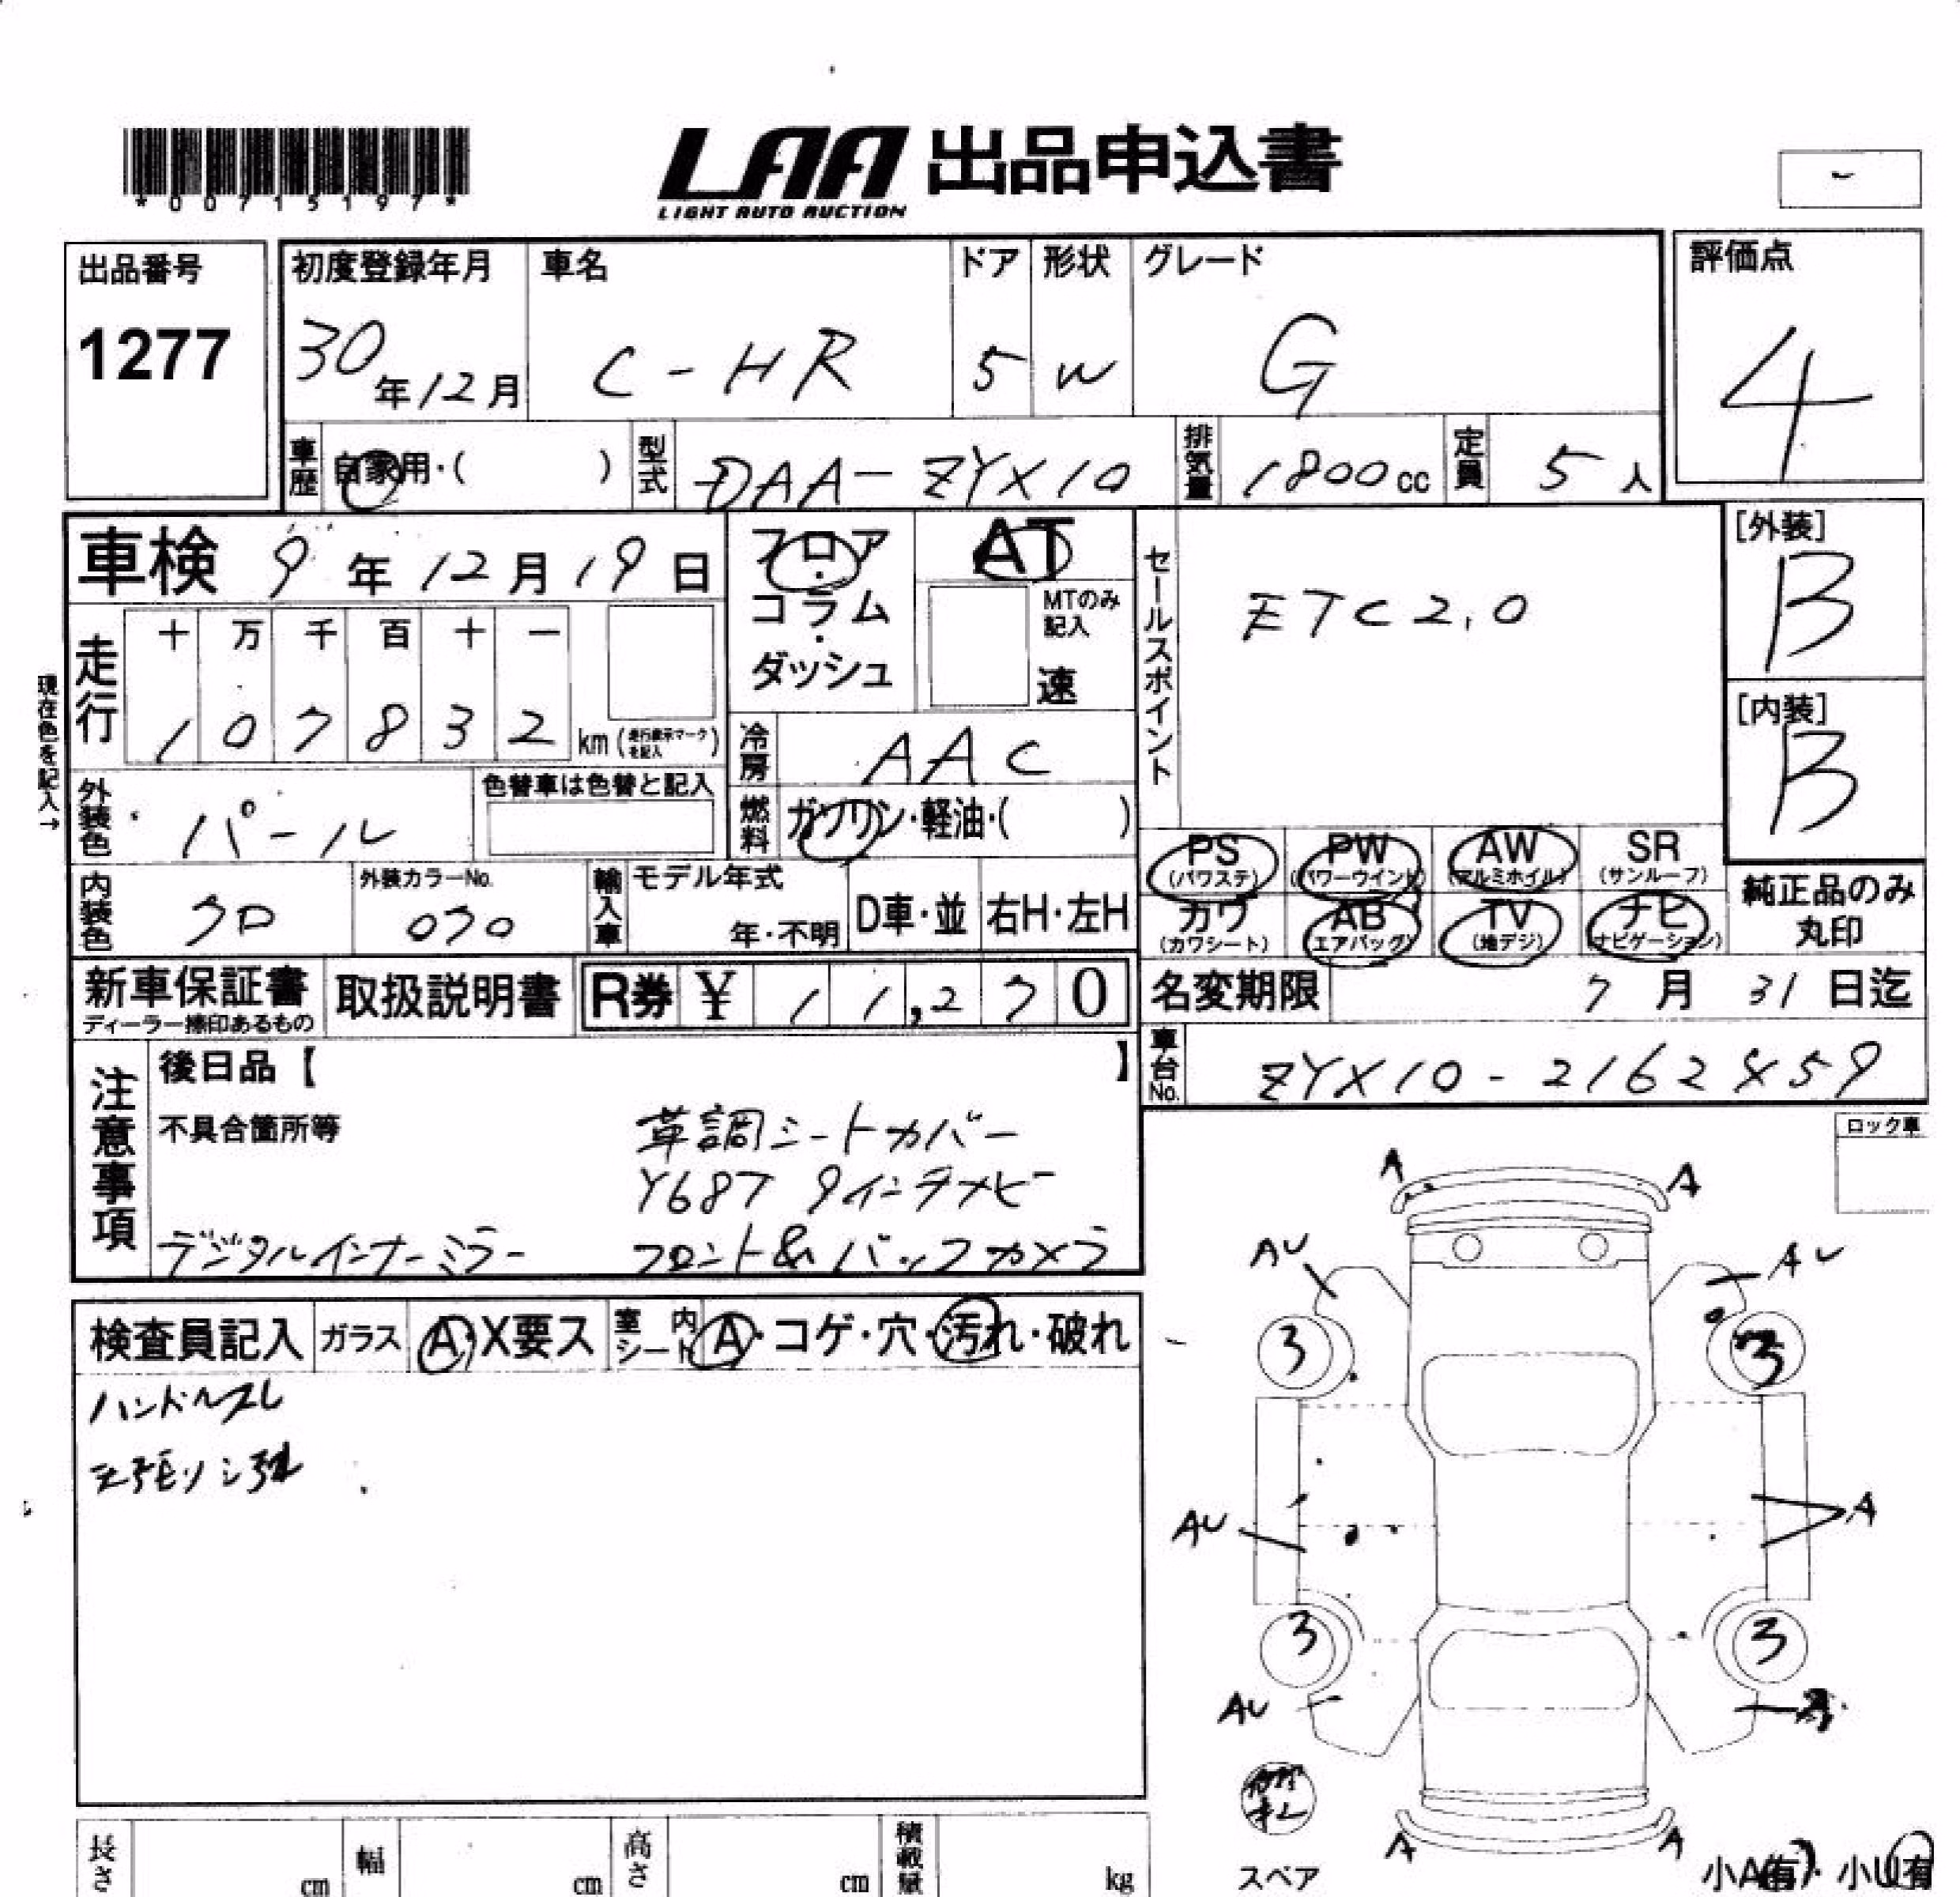 *00715197*
LAA 出品申込書
LIGHT AUTO AUCTION
出品番号
1277
初度登録年月
30年12月
車名
C-HR
ドア
5
形状
W
グレード
G
評価点
4
車歴
自家用・( )
型式
DAA-ZYX10
排気量
1800cc
定員
5人
車検 9年12月19日
フロア・コラム・ダッシュ
AT
MTのみ記入
速
セールスポイント
ETC2.0
[外装]
B
[内装]
B
現在色を記入→
走行
十 万 千 百 十 一
1 0 7 8 3 2 km (走行表示マークを記入)
冷房
AAC
外装色
パール
色替車は色替と記入
燃料
ガソリン・軽油・( )
PS (パワステ)
PW (パワーウインド)
AW (アルミホイル)
SR (サンルーフ)
カワ (カワシート)
AB (エアバッグ)
TV (地デジ)
ナビ (ナビゲーション)
純正品のみ丸印
内装色
クロ
外装カラーNo.
070
輸入車
モデル年式
年・不明
D車・並
右H・左H
新車保証書
ディーラー捺印あるもの
取扱説明書
R券 ¥ 11,270
名変期限 7月31日迄
車台No.
ZYX10-2162859
注意事項
後日品【 】
不具合箇所等
革調シートカバー
Y68T 9インチナビ
デジタルインナーミラー フロント&バックカメラ
ロック車
検査員記入 ガラス A・X要ス 室内シート A・コゲ・穴・汚れ・破れ
ハンドルスレ
A A
AU AU
3 3
AU A
3 3
AU
A A
スペア
小A(有)・小U(有
長さ cm 幅 cm 高さ cm 積載量 kg